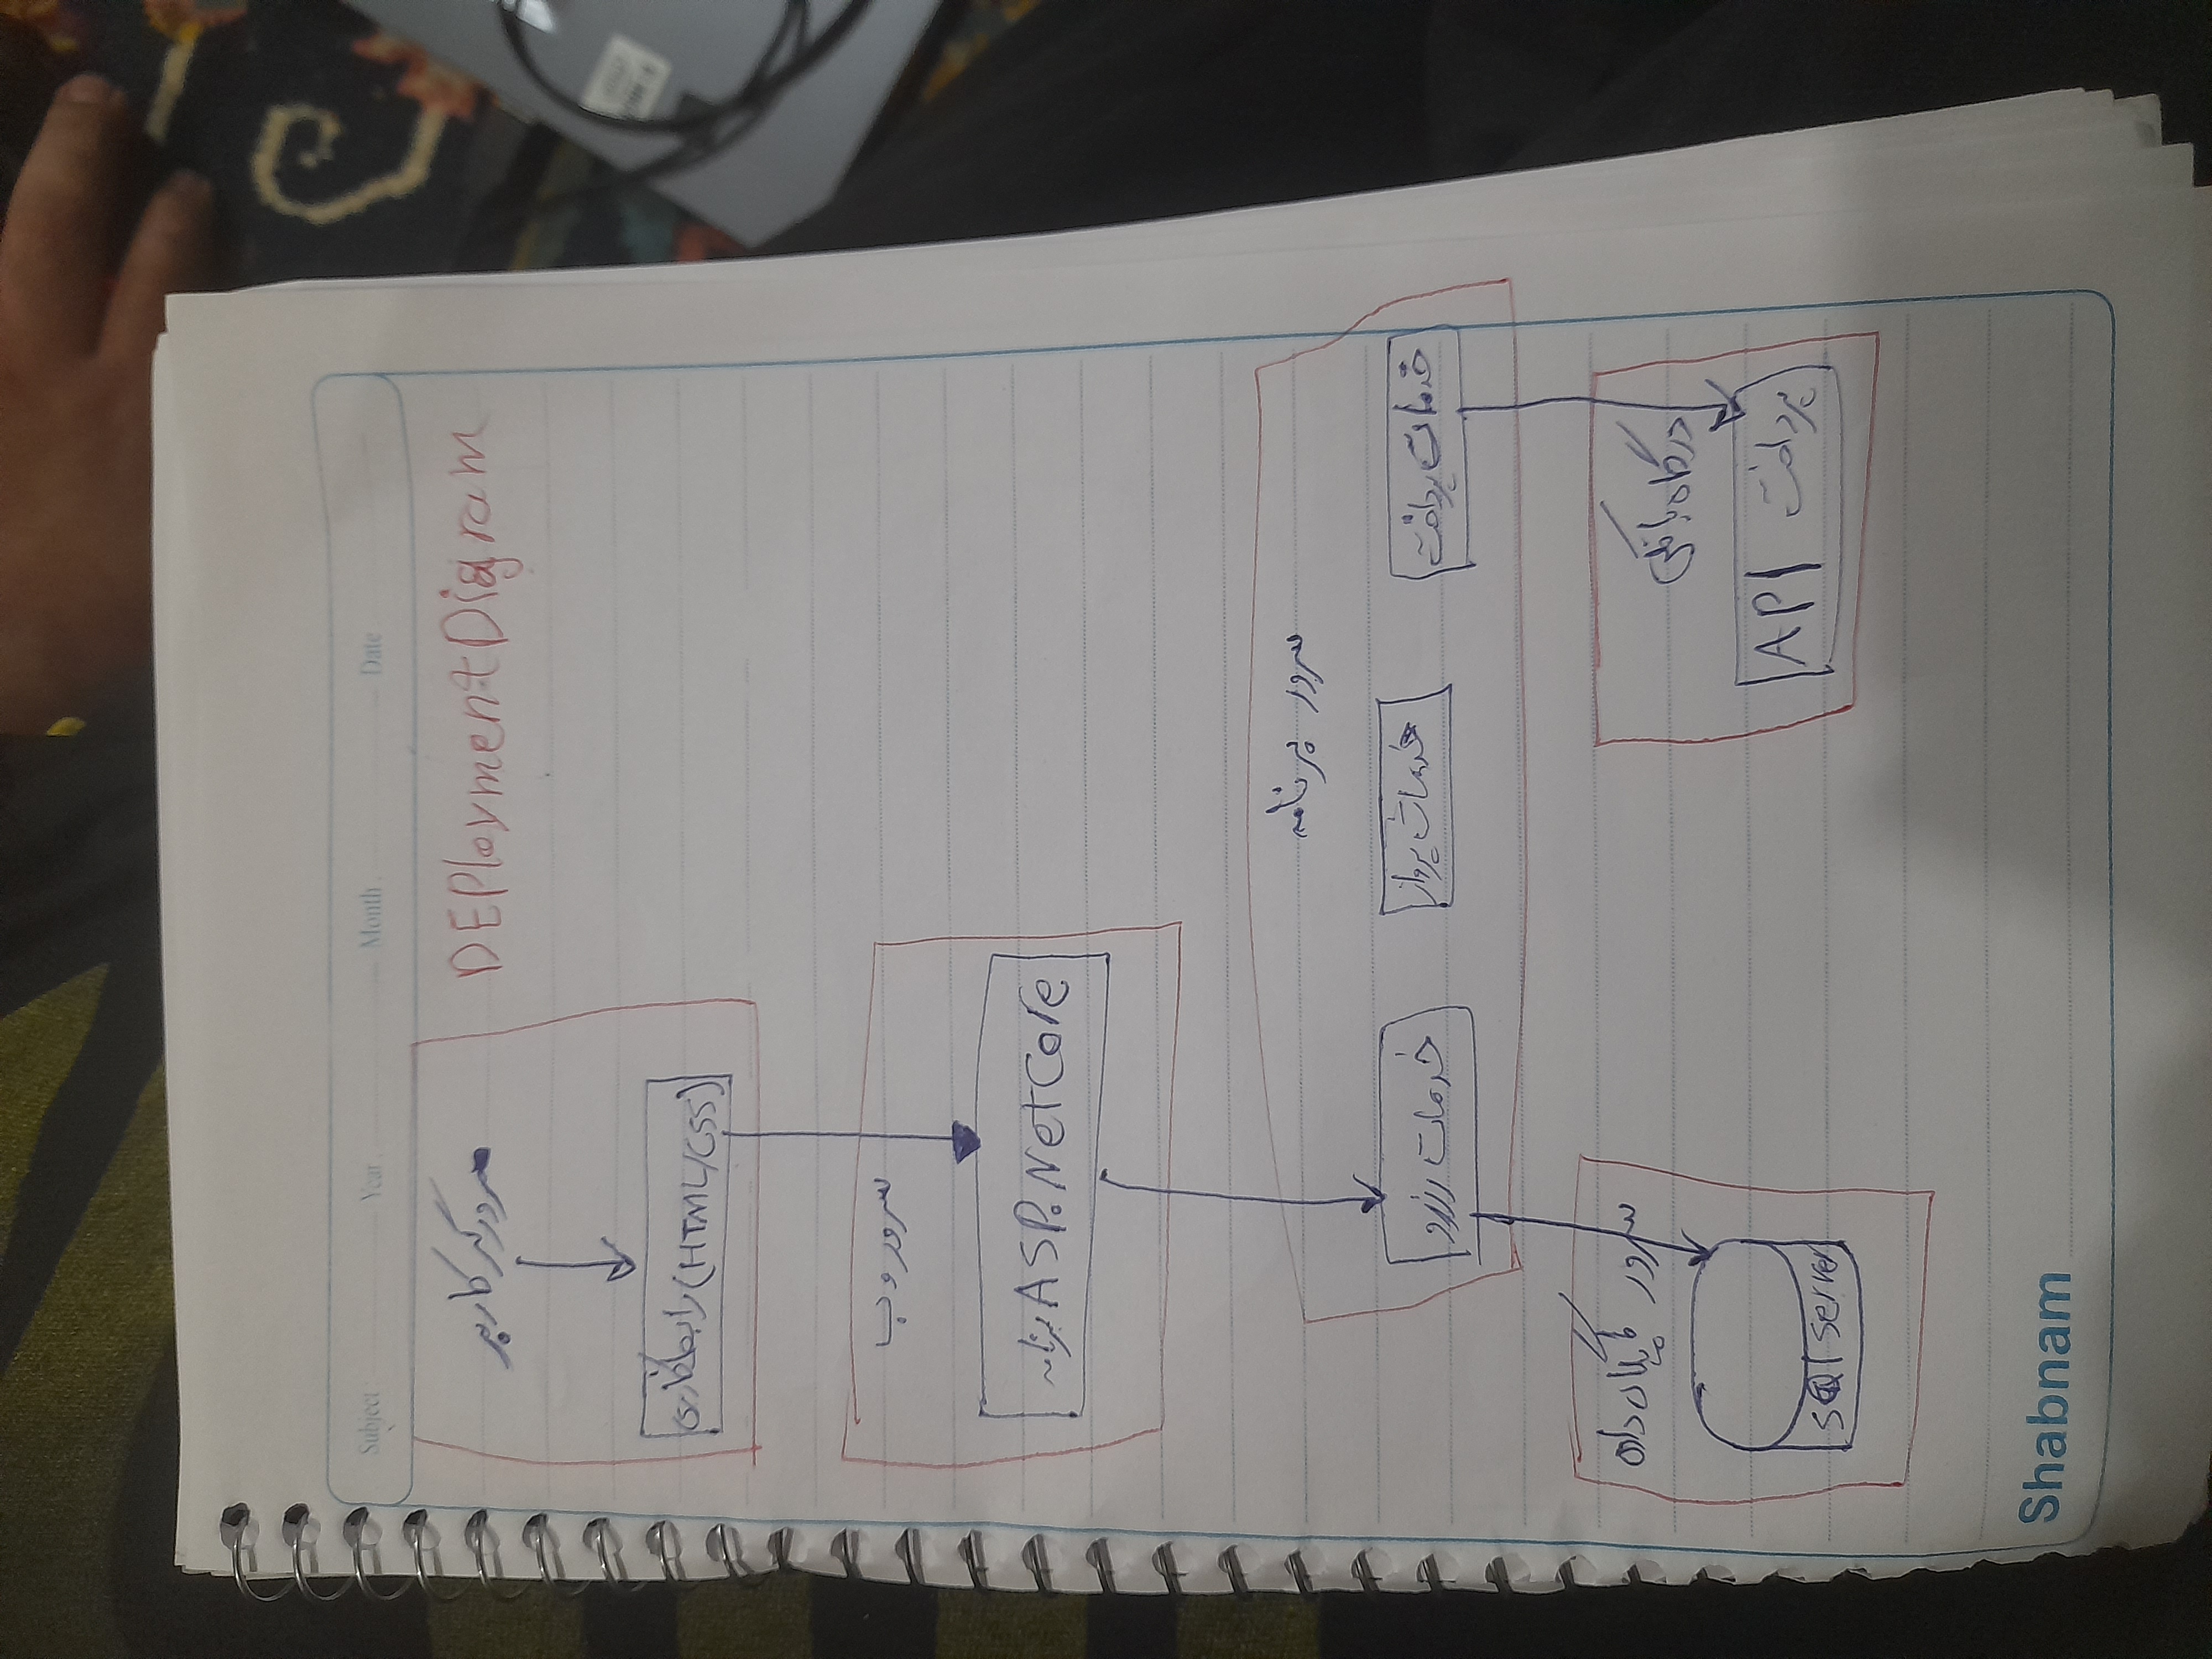 Subject Year Month Date
DEPloymentDiagram
مرورگر کاربر
رابط کاربری (HTML/CSS)
سرور وب
برنامه ASP.NetCore
سرور برنامه
خدمات رزرو
خدمات پرواز
خدمات پرداخت
سرور پایگاه داده
SQl server
درگاه بانکی
API پرداخت
Shabnam